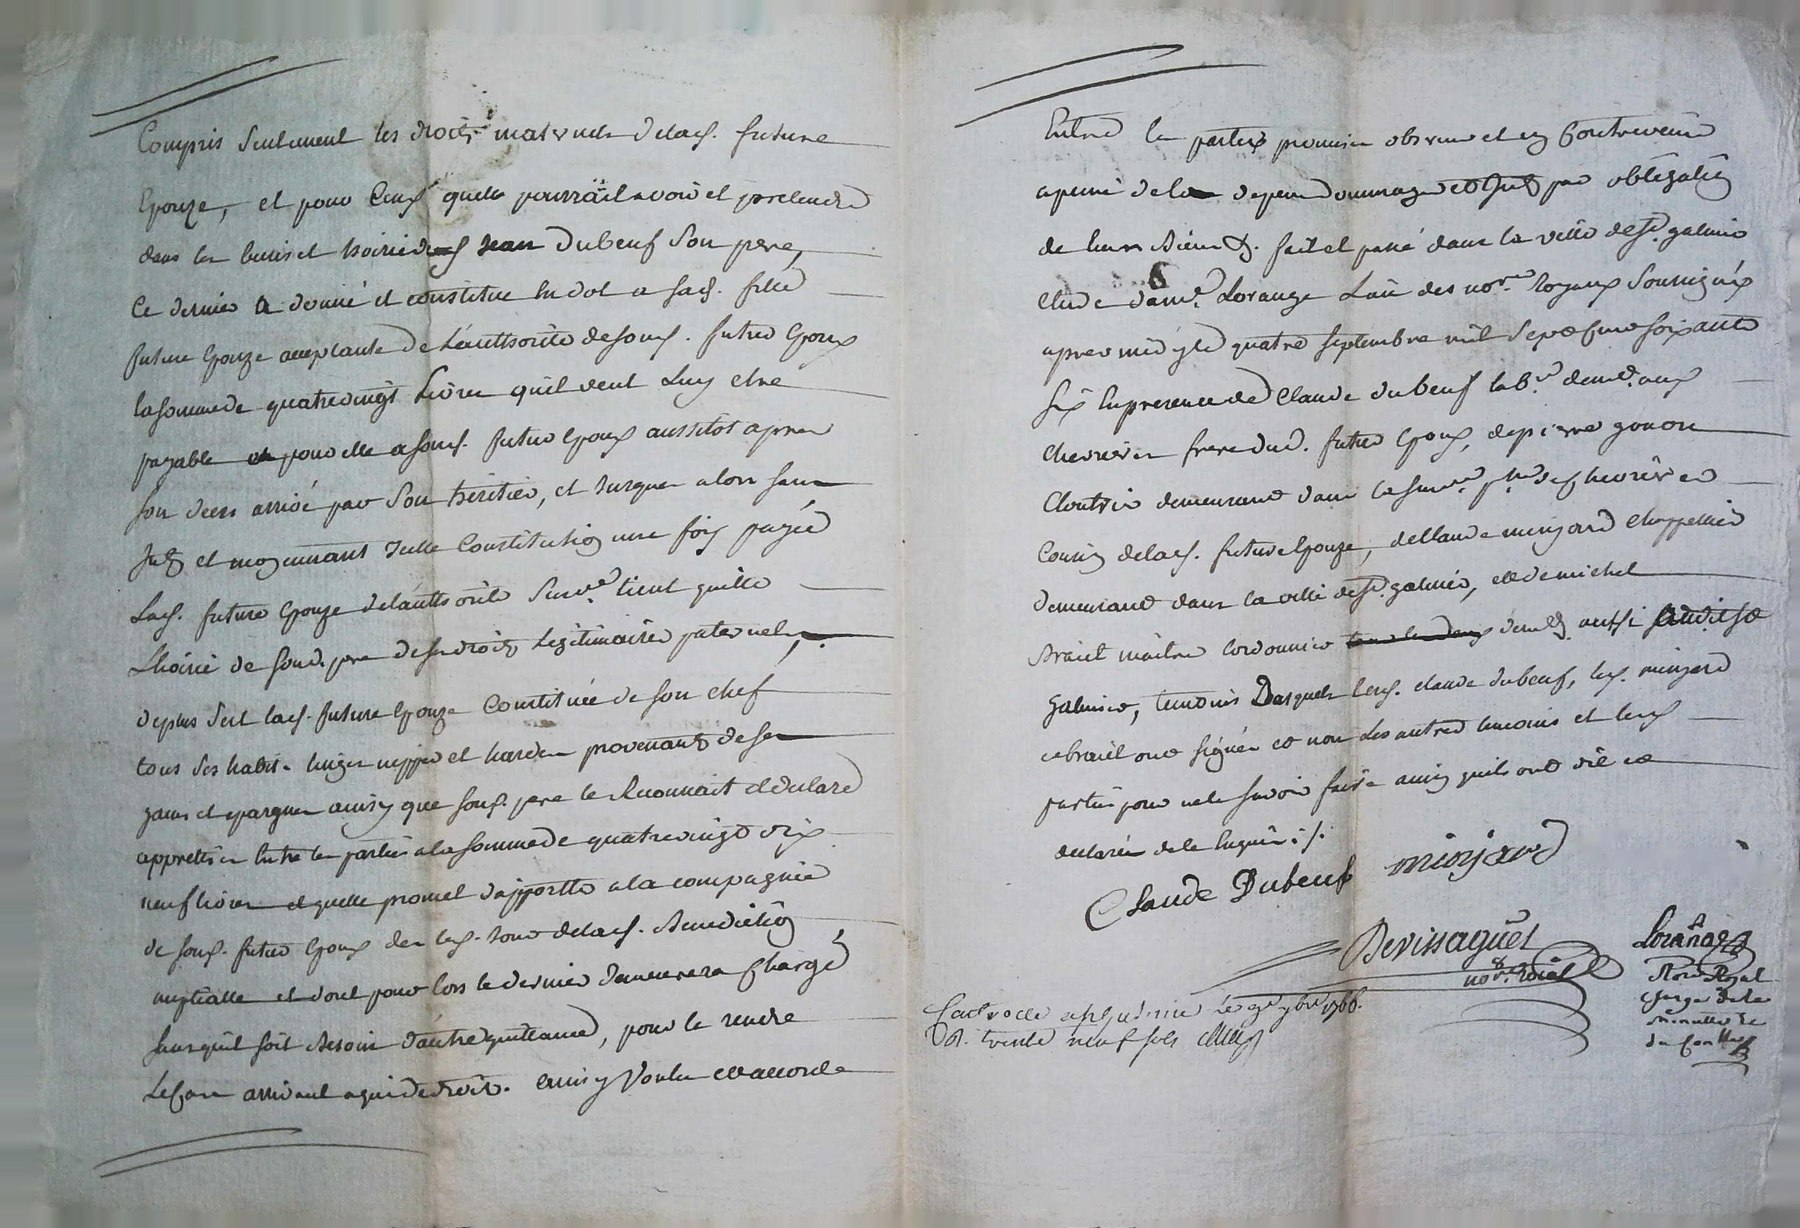 Compris seulement les droits maternels de lad. future
Epouze, et pour ceux quelle pourrait avoir et pretendre
dans les biens et hoirie dud. Jean Dubeuf son pere,
Ce dernier a donné et constitué en dot a sad. fille
future Epouze acceptante de l'authorité de sond. futur Epoux
la somme de quatrevingt Livres qu'il veut Luy etre
payable pour elle a sond. futur Epoux aussitot apres
son deces arrivé par son heritier, et jusques alors sans
et moyennant telle Constitution une fois payée
Lad. future Epouze de l'authorité Susd.e tient quitte
L'hoirie de sond. pere de ses droits Legitimaires paternels,
de plus s'est lad. future Epouze Constituée de son chef
tous ses habits linges nippes et hardes provenants de ses
gains et epargnes ainsy que sond. pere le Reconnait et declare
apprettiés entre les parties a la somme de quatrevingt dix
neuf livres et quelle promet d'apporter a la compagnie
de sond. futur Epoux des le jour de lad. Benediction
nuptialle et dont pour lors le dernier demeurera Chargé
sans quil soit Besoin d'autre quittance, pour le rendre
Le Cas arrivant a qui de droit. ainsy Voulu et accordé
Entre les parties promis observer et non Contrevenir
a peine de depens dommages et par obligation
de leurs Biens &. fait et passé dans la ville de St. galmier
Etude dam.e Lorange L'un des no.res Royaux Soussignés
apres midy le quatre septembre mil sept cent soixante
six En presence de Claude dubeuf lab.r dem.t aux
Chevrieres frere dud. futur Epoux, de pierre gonon
Cloutrier demeurant dans la de Chevrieres
Cousin de lad. future Epouze, de Claude minjard Chappellier
demeurant dans la ville de St. galmier, et de michel
maitre cordonnier dem.t aussi audit St
galmier, temoins Desquels led. claude dubeuf, led. minjard
ont signés et non Les autres temoins et lesd.
parties pour ne le savoir faire ainsy quils ont dit et
declaré de ce Enquis ./.
Claude Dubeuf minjard
Devissaguet
no.re Roial
Lorange
No.re Royal
charge de la
Minutte de
Controllé a St Galmier le 9e 7bre 1766.
R. trente neuf sols